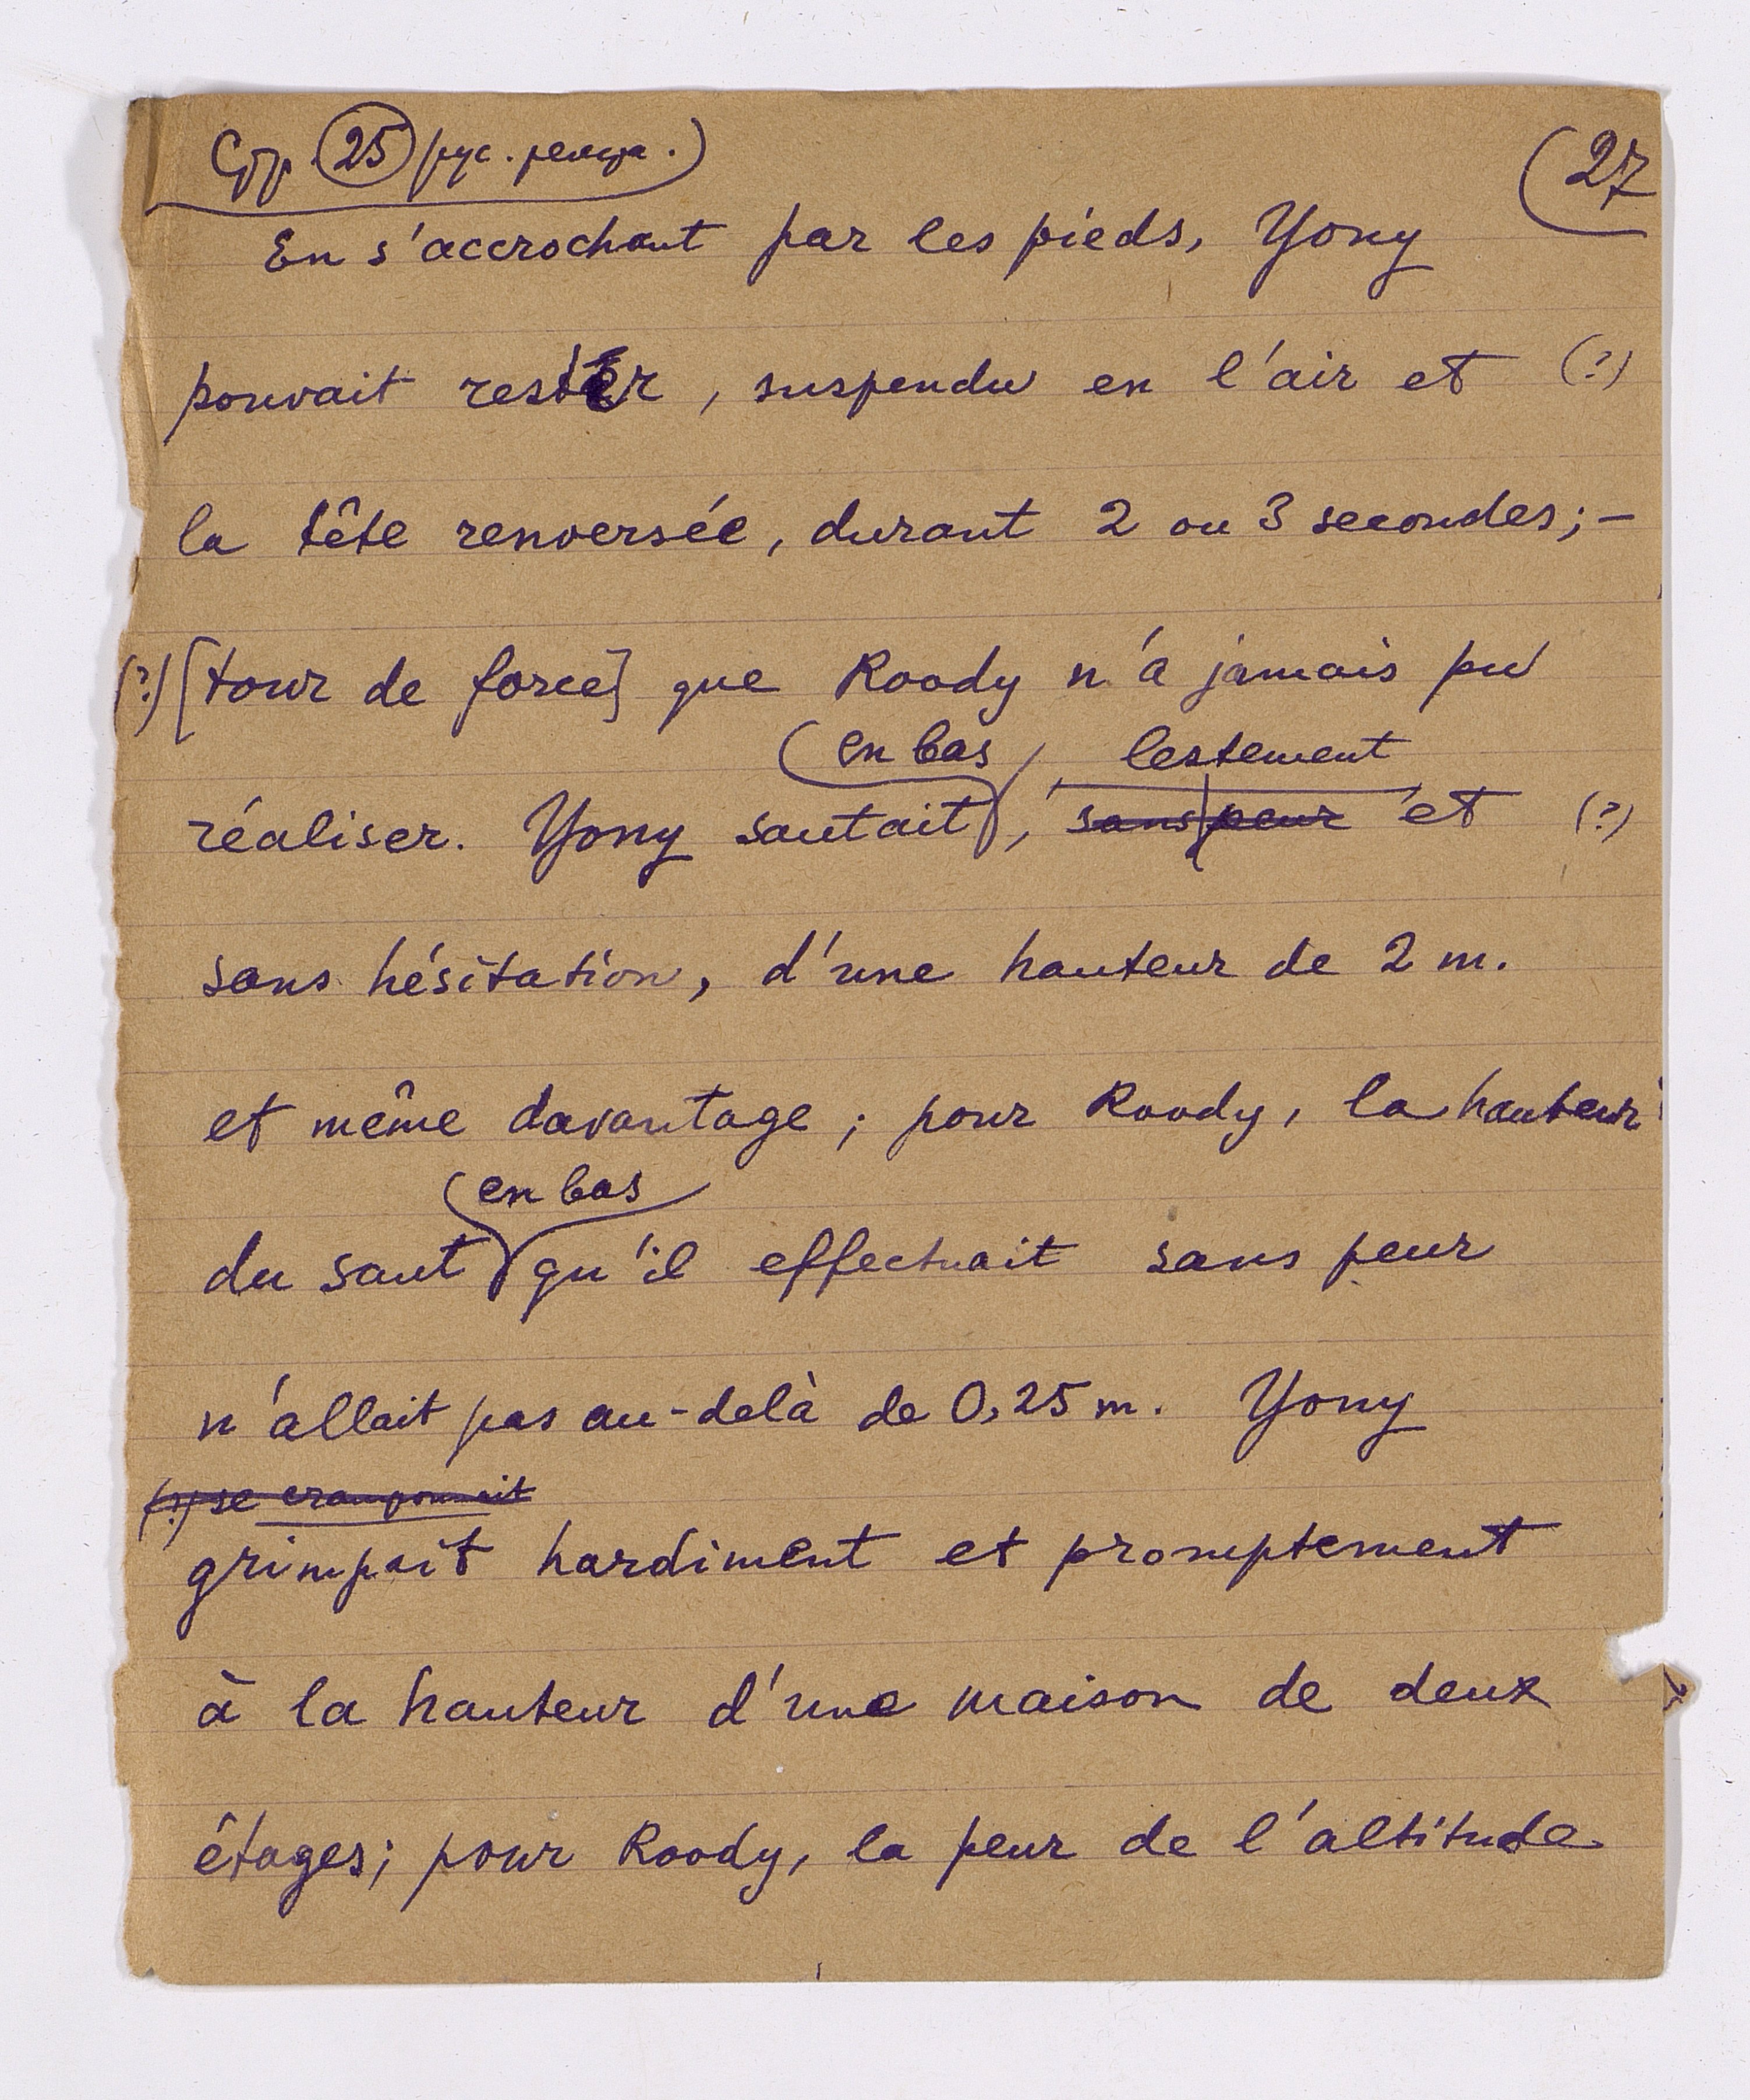 Стр. 25 рус. 
27
En s'accrochant par les pieds, Yony
pouvait rester, suspendu en l'air et (?)
la tête renversée, durant 2 ou 3 secondes; –
(?) [tour de force] que Roody n'a jamais pu
en bas lestement
réaliser. Yony sautait, sans peur et (?)
sans hésitation, d'une hauteur de 2 m.
et même davantage; pour Roody, la hauteur
en bas
du saut qu'il effectuait sans peur
n'allait pas au-delà de 0,25 m. Yony
(?) se cramponnait
grimpait hardiment et promptement
à la hauteur d'une maison de deux
étages; pour Roody, la peur de l'altitude